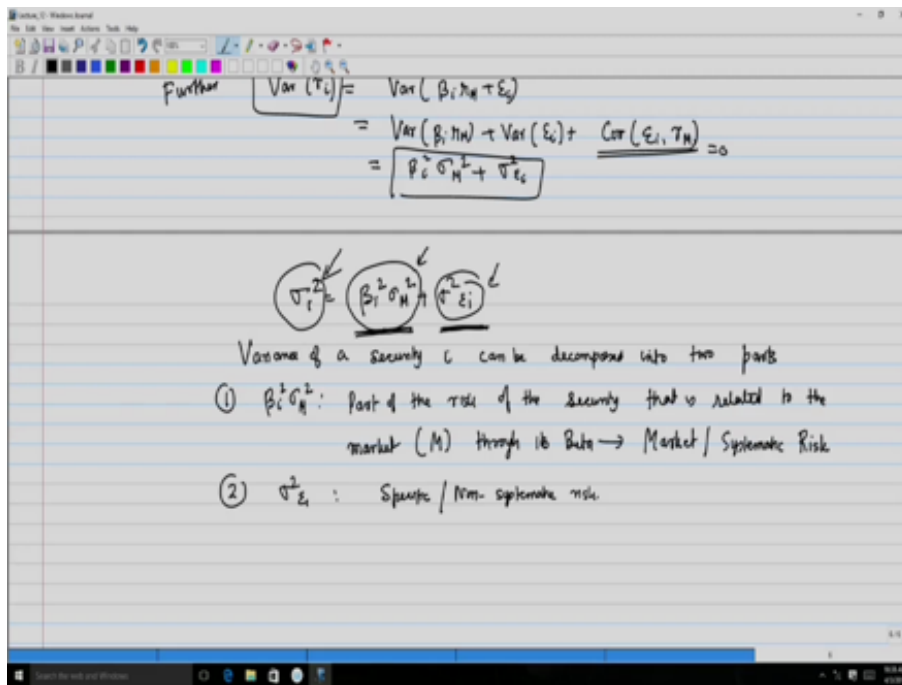 Lecture_12 - Windows Journal
File Edit View Insert Actions Tools Help
B I
Further Var (r_i) = Var ( β_i r_M + ε_i)
= Var ( β_i r_M) + Var (ε_i) + Cov ( ε_i, r_M) =0
= β_i^2 σ_M^2 + σ^2_ε_i
σ_i^2 = β_i^2 σ_M^2 + σ^2_ε_i
Variance of a security i can be decomposed into two parts
① β_i^2 σ_M^2 : Part of the risk of the security that is related to the
market (M) through its Beta → Market / Systematic Risk
② σ^2_ε_i : Specific / Non-systematic risk
Search the web and Windows